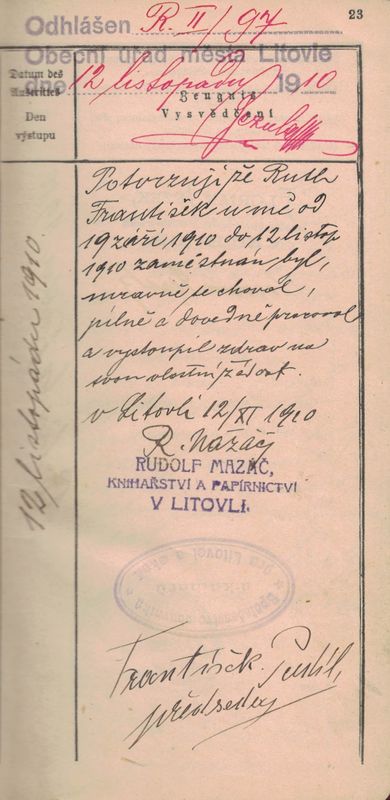 23
Odhlášen R. II/97
Obecní úřad města Litovle
dne 12/listopadu 1910
Datum des
Austrittes
Den
výstupu
Zeugnis
Vysvědčení
Potvrzuji že Ruth
František u mě od
19 září 1910 do 12 listop
1910 zaměstnán byl,
mravně se choval,
pilně a dovedně pracoval
a vystoupil zdráv na
svou vlastní žádost.
v Litovli 12/XI 1910
R. Mazáč
RUDOLF MAZÁČ,
KNIHAŘSTVÍ A PAPÍRNICTVÍ
V LITOVLI.
12/listopadu 1910.
pro Litovel a okolí
František
předseda